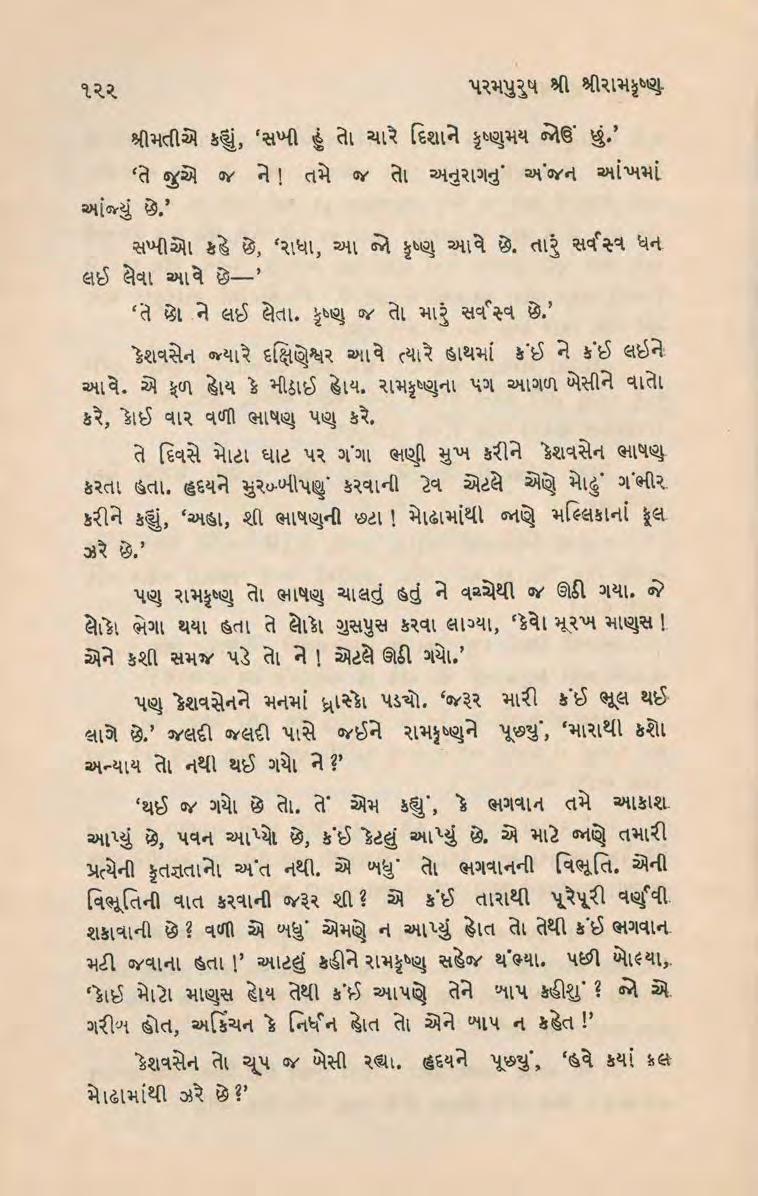 ૧૨૨
પરમપુરુષ શ્રી શ્રીરામકૃષ્ણ
શ્રીમતીએ કહ્યું, ‘સખી હું તો ચારે દિશાને કૃષ્ણમય જોઉં છું.’
‘તે જુએ જ ને! તમે જ તો અનુરાગનું અંજન આંખમાં
આંજ્યું છે.’
સખીઓ કહે છે, ‘રાધા, આ જો કૃષ્ણ આવે છે. તારું સર્વસ્વ ધન
લઈ લેવા આવે છે—’
‘તે છો ને લઈ લેતા. કૃષ્ણ જ તો મારું સર્વસ્વ છે.’
કેશવસેન જ્યારે દક્ષિણેશ્વર આવે ત્યારે હાથમાં કંઈ ને કંઈ લઇને
આવે. એ ફળ હોય કે મીઠાઈ હોય. રામકૃષ્ણના પગ આગળ બેસીને વાતો
કરે, કોઈ વાર વળી ભાષણ પણ કરે.
તે દિવસે મોટા ઘાટ પર ગંગા ભણી મુખ કરીને કેશવસેન ભાષણ
કરતા હતા. હૃદયને મુરબ્બીપણું કરવાની ટેવ એટલે એણે મોઢું ગંભીર
કરીને કહ્યું, ‘અહા, શી ભાષણની છટા! મોઢામાંથી જાણે મલ્લિકાનાં ફૂલ
ઝરે છે.’
પણ રામકૃષ્ણ તો ભાષણ ચાલતું હતું ને વચ્ચેથી જ ઊઠી ગયા. જે
લોકો ભેગા થયા હતા તે લોકો ગુસપુસ કરવા લાગ્યા, ‘કેવો મૂરખ માણસ!
એને કશી સમજ પડે તો ને! એટલે ઊઠી ગયો.’
પણ કેશવસેનને મનમાં ધ્રાસ્કો પડ્યો. ‘જરૂર મારી કંઈ ભૂલ થઈ
લાગે છે.’ જલદી જલદી પાસે જઈને રામકૃષ્ણને પૂછ્યું, ‘મારાથી કશો
અન્યાય તો નથી થઈ ગયો ને?’
‘થઈ જ ગયો છે તો. તેં એમ કહ્યું, કે ભગવાન તમે આકાશ
આપ્યું છે, પવન આપ્યો છે, કંઈ કેટલું આપ્યું છે. એ માટે જાણે તમારી
પ્રત્યેની કૃતજ્ઞતાનો અંત નથી. એ બધું તો ભગવાનની વિભૂતિ. એની
વિભૂતિની વાત કરવાની જરૂર શી? એ કંઈ તારાથી પૂરેપૂરી વર્ણવી
શકાવાની છે? વળી એ બધું એમણે ન આપ્યું હોત તો તેથી કંઈ ભગવાન
મટી જવાના હતા!’ આટલું કહીને રામકૃષ્ણ સહેજ થંભ્યા. પછી બોલ્યા,
‘કોઈ મોટો માણસ હોય તેથી કંઈ આપણે તેને બાપ કહીશું? જો એ
ગરીબ હોત, અકિંચન કે નિર્ધન હોત તો એને બાપ ન કહેત!’
કેશવસેન તો ચૂપ જ બેસી રહ્યા. હૃદયને પૂછ્યું, ‘હવે ક્યાં ફૂલ
મોઢામાંથી ઝરે છે?’